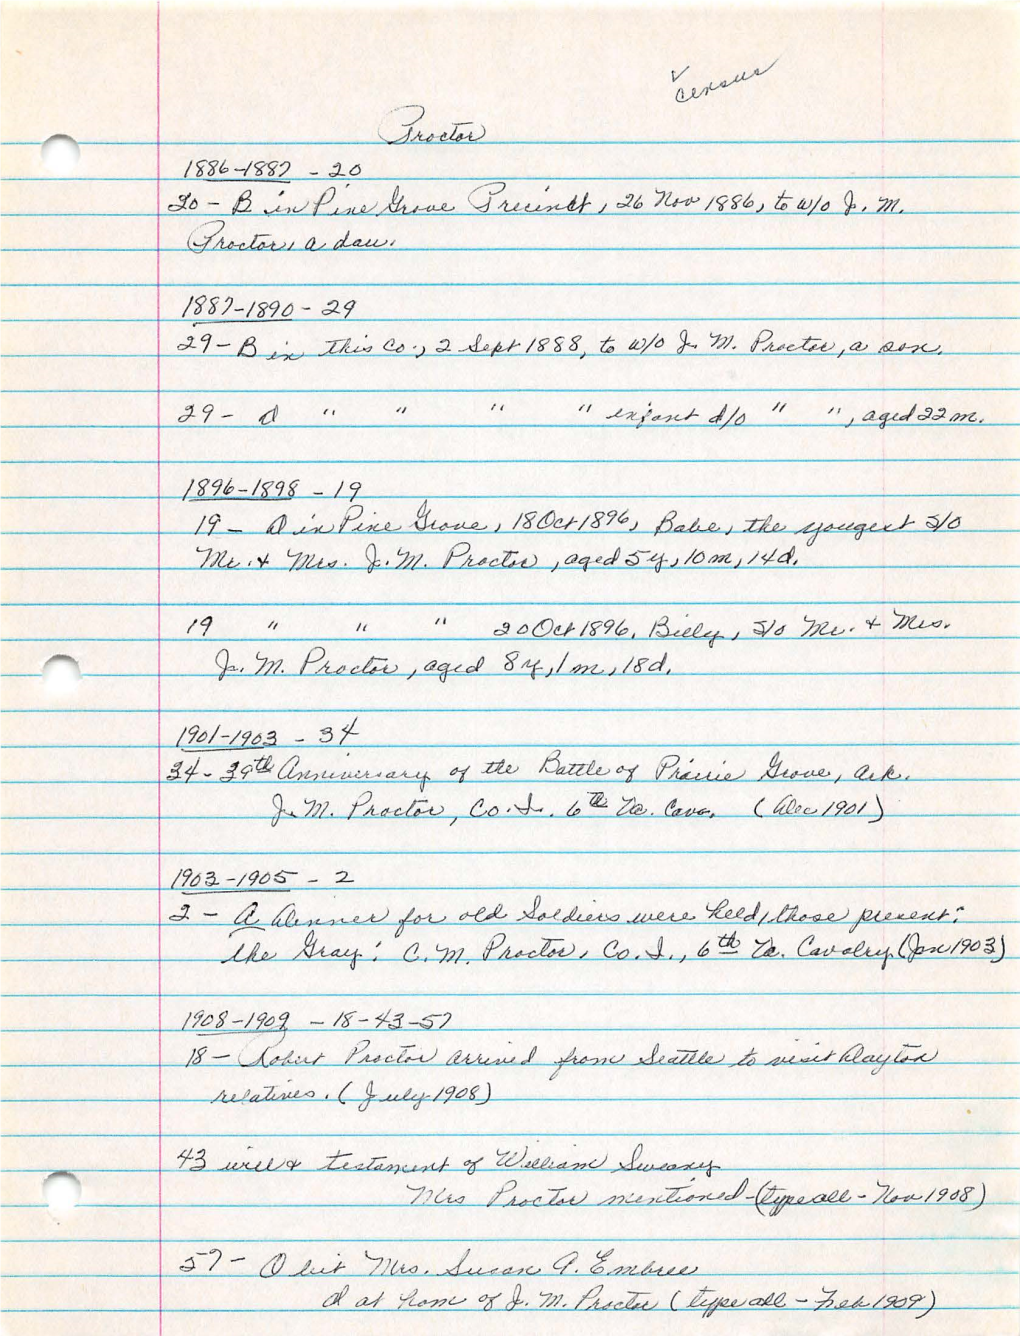 ✓
census
Proctor
1886-1887 - 20
20 - B in Pine Grove Precinct, 26 Nov 1886, to w/o J. M.
Proctor, a dau.
1887-1890 - 29
29 - B in this co., 2 Sept 1888, to w/o J. M. Proctor, a son.
29 - d " " " " infant d/o " ", aged 22 m.
1896-1898 - 19
19 - D in Pine Grove, 18 Oct 1896, Babe, the yougest s/o
Mr. & Mrs. J. M. Proctor, aged 5 y, 10 m, 14 d.
19 " " " 20 Oct 1896, Billy, s/o Mr. & Mrs.
J. M. Proctor, aged 8 y, 1 m, 18 d.
1901-1903 - 34
34 - 39th Anniversary of the Battle of Prairie Grove, Ark.
J. M. Proctor, Co. I. 6th Va. Cava. (Dec 1901)
1903-1905 - 2
2 - A Dinner for old Soldiers were held, those present:
the Gray: C. M. Proctor, Co. I., 6th Va. Cavalry (Jan 1903)
1908-1909 - 18-43-57
18 - Robert Proctor arrived from Seattle to visit Dayton
relatives. (July 1908)
43 will & testament of William Sweany
Mrs Proctor mentioned - (type all - Nov 1908)
57 - Obit Mrs. Susan A. Embree
d at hom of J. M. Proctor (type all - Feb 1909)